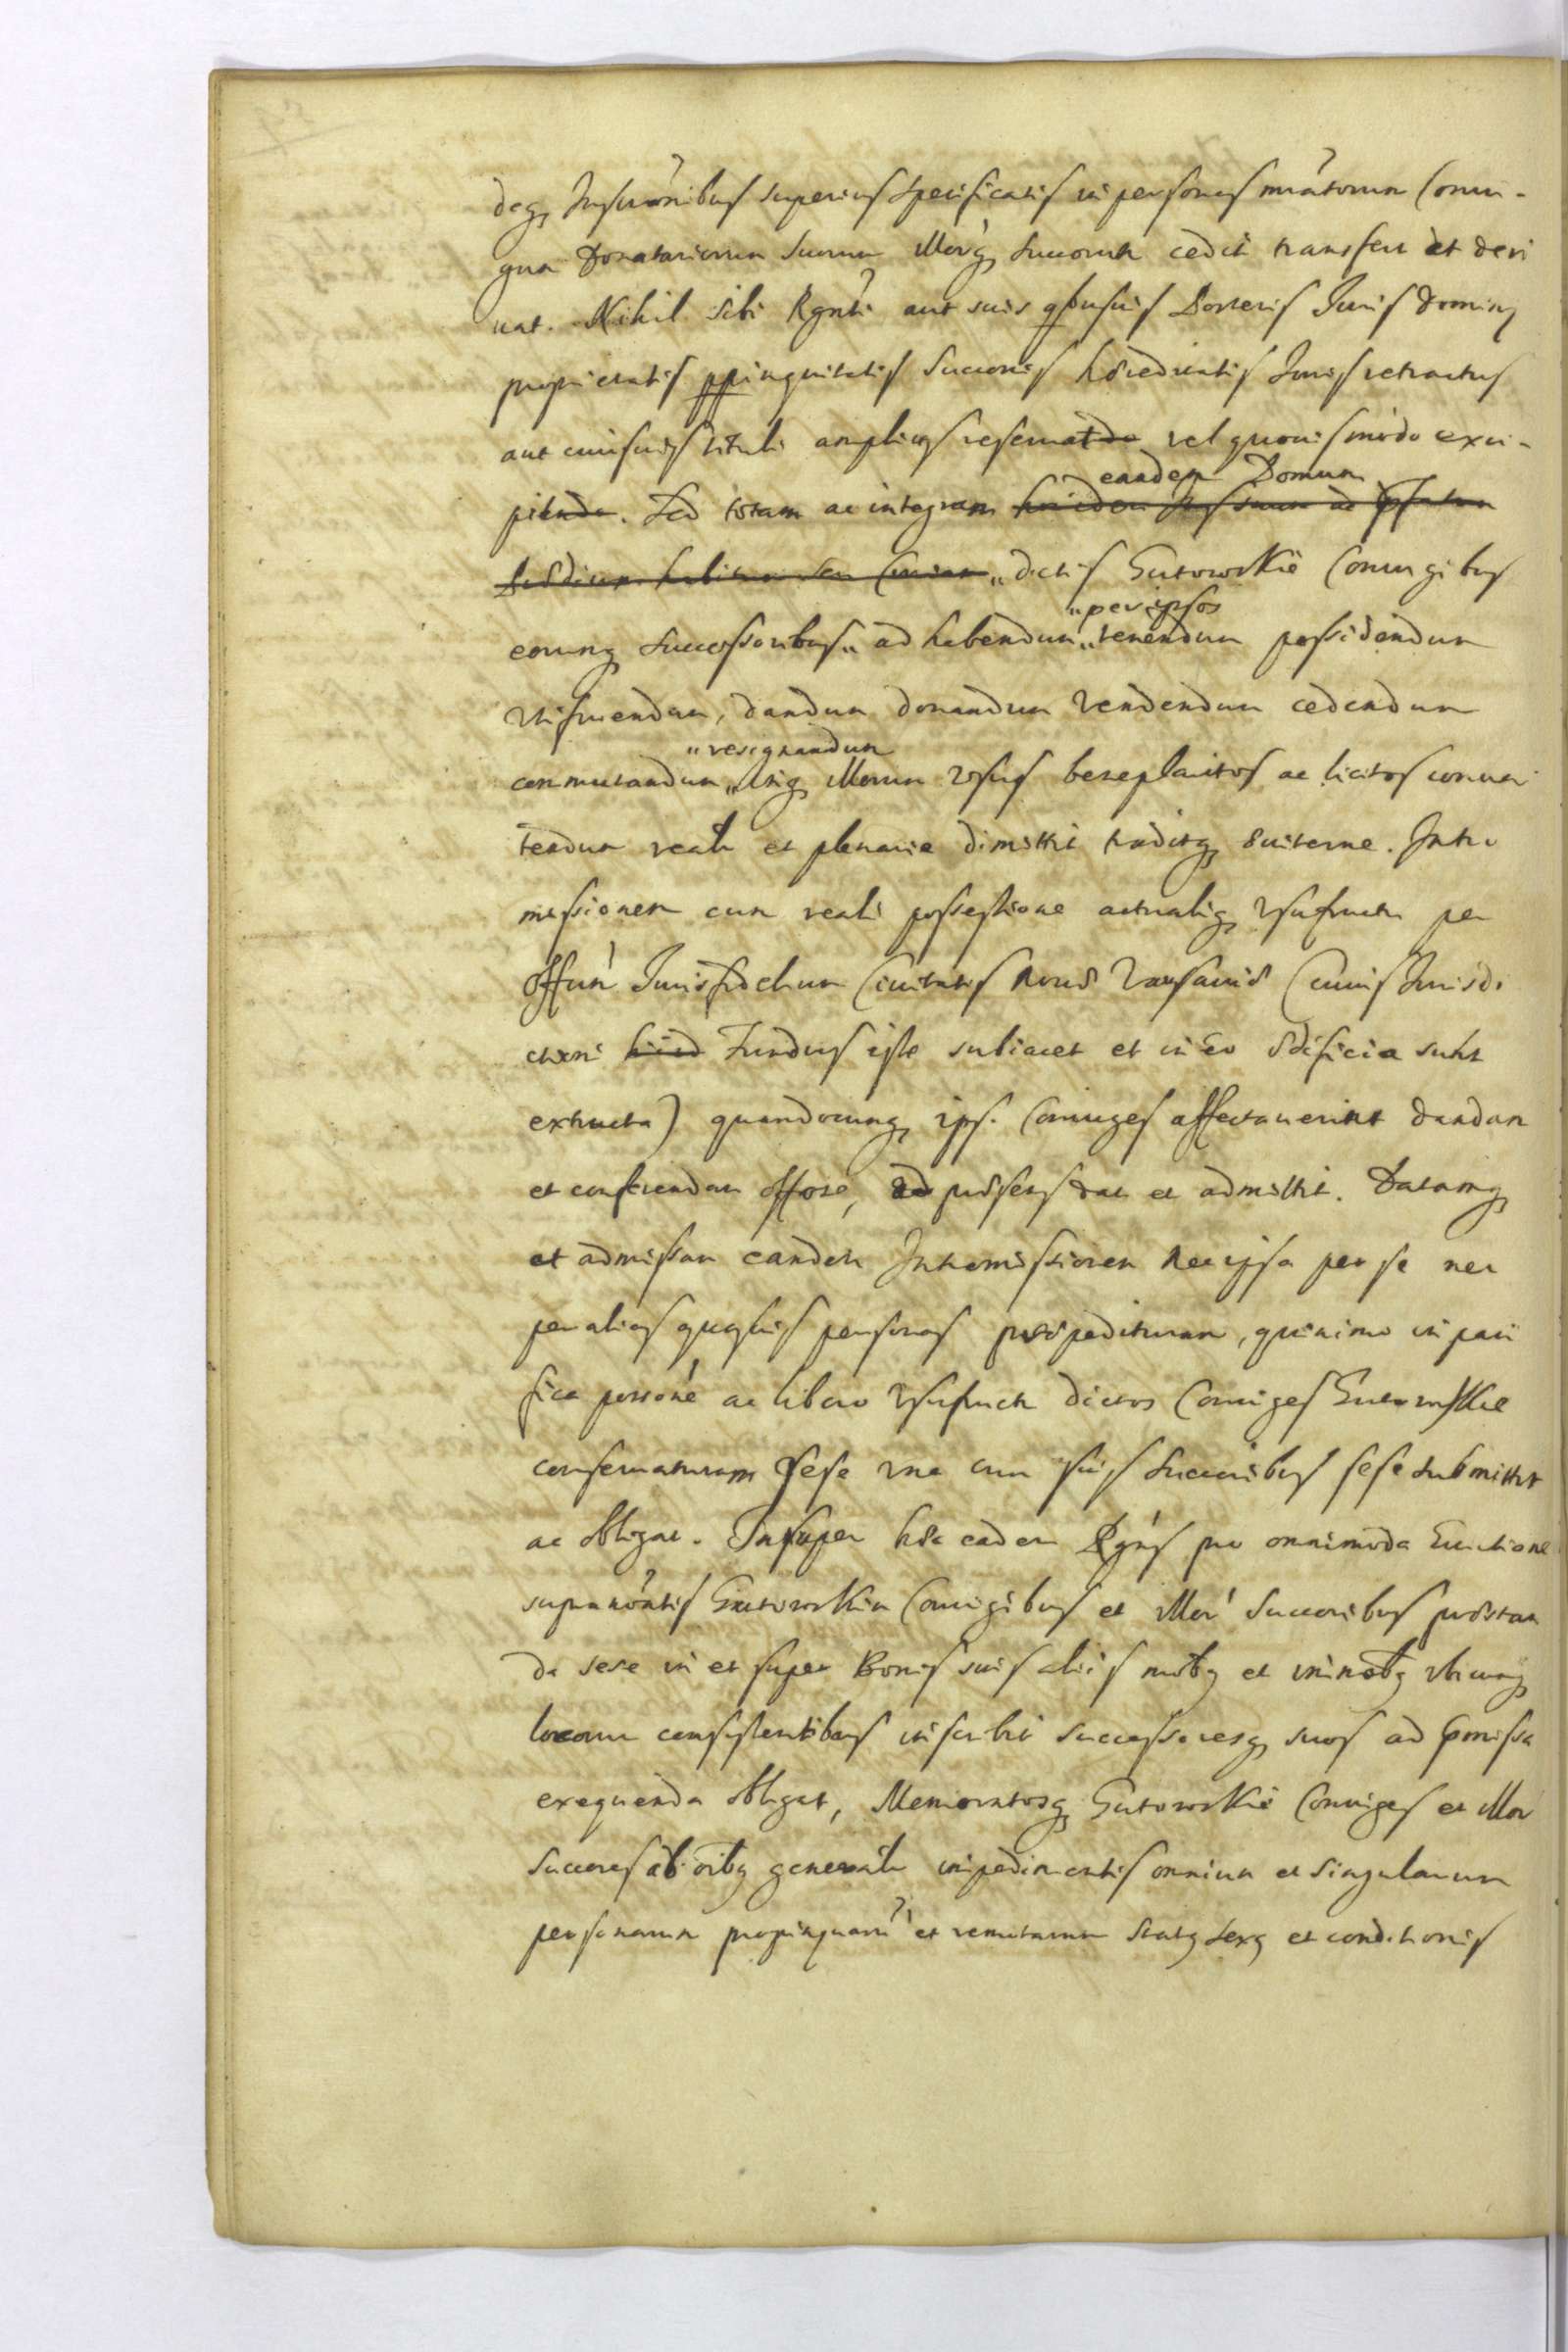 deq Inscriônibus superius specificatis in personas mrâtorum Coniu-
gum Donatariorum suorum illorq succorum cedit transfert et deri
uat. Nihil sibi Rgnti aut suis qbusuis Posteris Juris Dominy
proprietatis ppinquitatis Succonis hæreditatis Juris retractus
aut cuiusuis tituli amplius reseruat vel quouismodo exci-
piendo. Sed totam ac integram eandem Domum
dictis Gutowskie Coniugibus
eorumq Successoribus ad habendum "per ipsos tenendum possidendum
Vtifruendum, dandum donandum vendendum cedendum
"resignandum
commutandum Inq illorum vsus beneplacitos ac licitos conuer
tendum realr et plenarie dimittit traditq æuiterne. Intro
missionem cum reali possessione actualiq vsufructu per
Offum Jurisfidelium Ciuitatis Nouæ Varsauiæ (cuius Jurisdi
ctioni Fundus iste subiacet et in eo ædificia sunt
extructa) quandocunq ips. Coniuges affectauerint dandam
et conferendam offore, præsens dat et admittit. Datamq
et admissam eandem Intromissionem nec ipsa per se nec
per alias quasuis personas præpedituram, quinimo in paci
fica possone ac libero vsufructu dictos Coniuges Gutowskie
conseruaturam sese vna cum suis succoribus sese submittit
ac obligat. Insuper hæc eadem Rgns pro omnimoda Euictione
supranôntis Gutowskim Coniugibus et illor succoribus præstan
da sese in et super Bonis suis aliis mobq et immobq vbicunq
locorum consistentibus inscribit successoresq suos ad pmissa
exequenda obligat, Memoratosq Gutowskie Coniuges et illor
succores ab oibq generalr impedimentis omnium et singularum
personarum propinquarum et remotarum statq sexq et conditionis